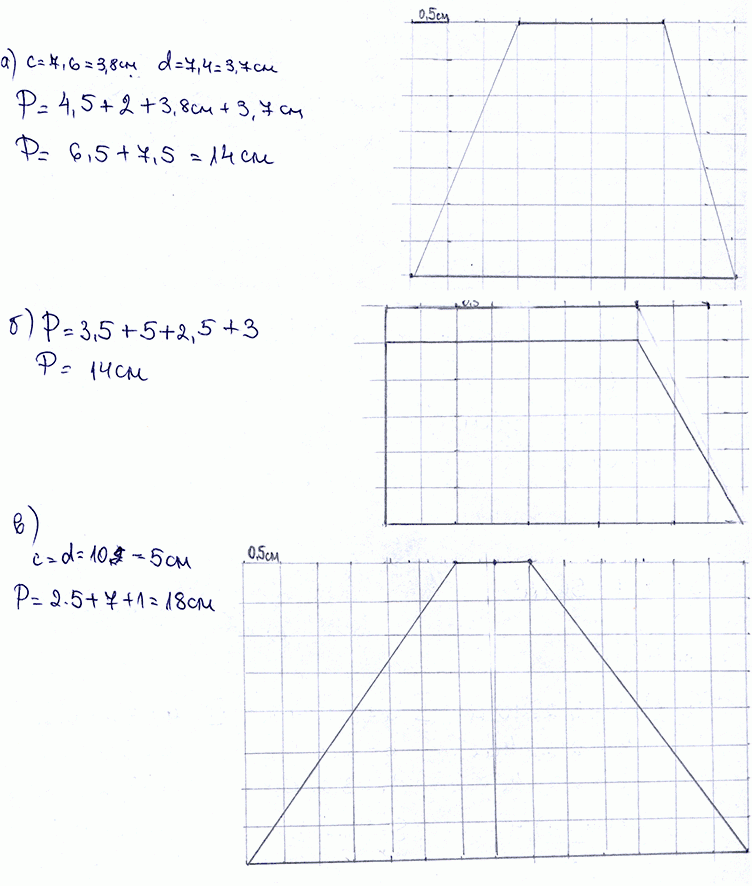 0,5см
а) c=7,6=3,8см d=7,4=3,7см
P=4,5+2+3,8см+3,7см
P= 6,5+7,5=14см
0,5
б) P=3,5+5+2,5+3
P= 14см
в)
c=d=10 =5см
0,5см
P=2.5+7+1=18см